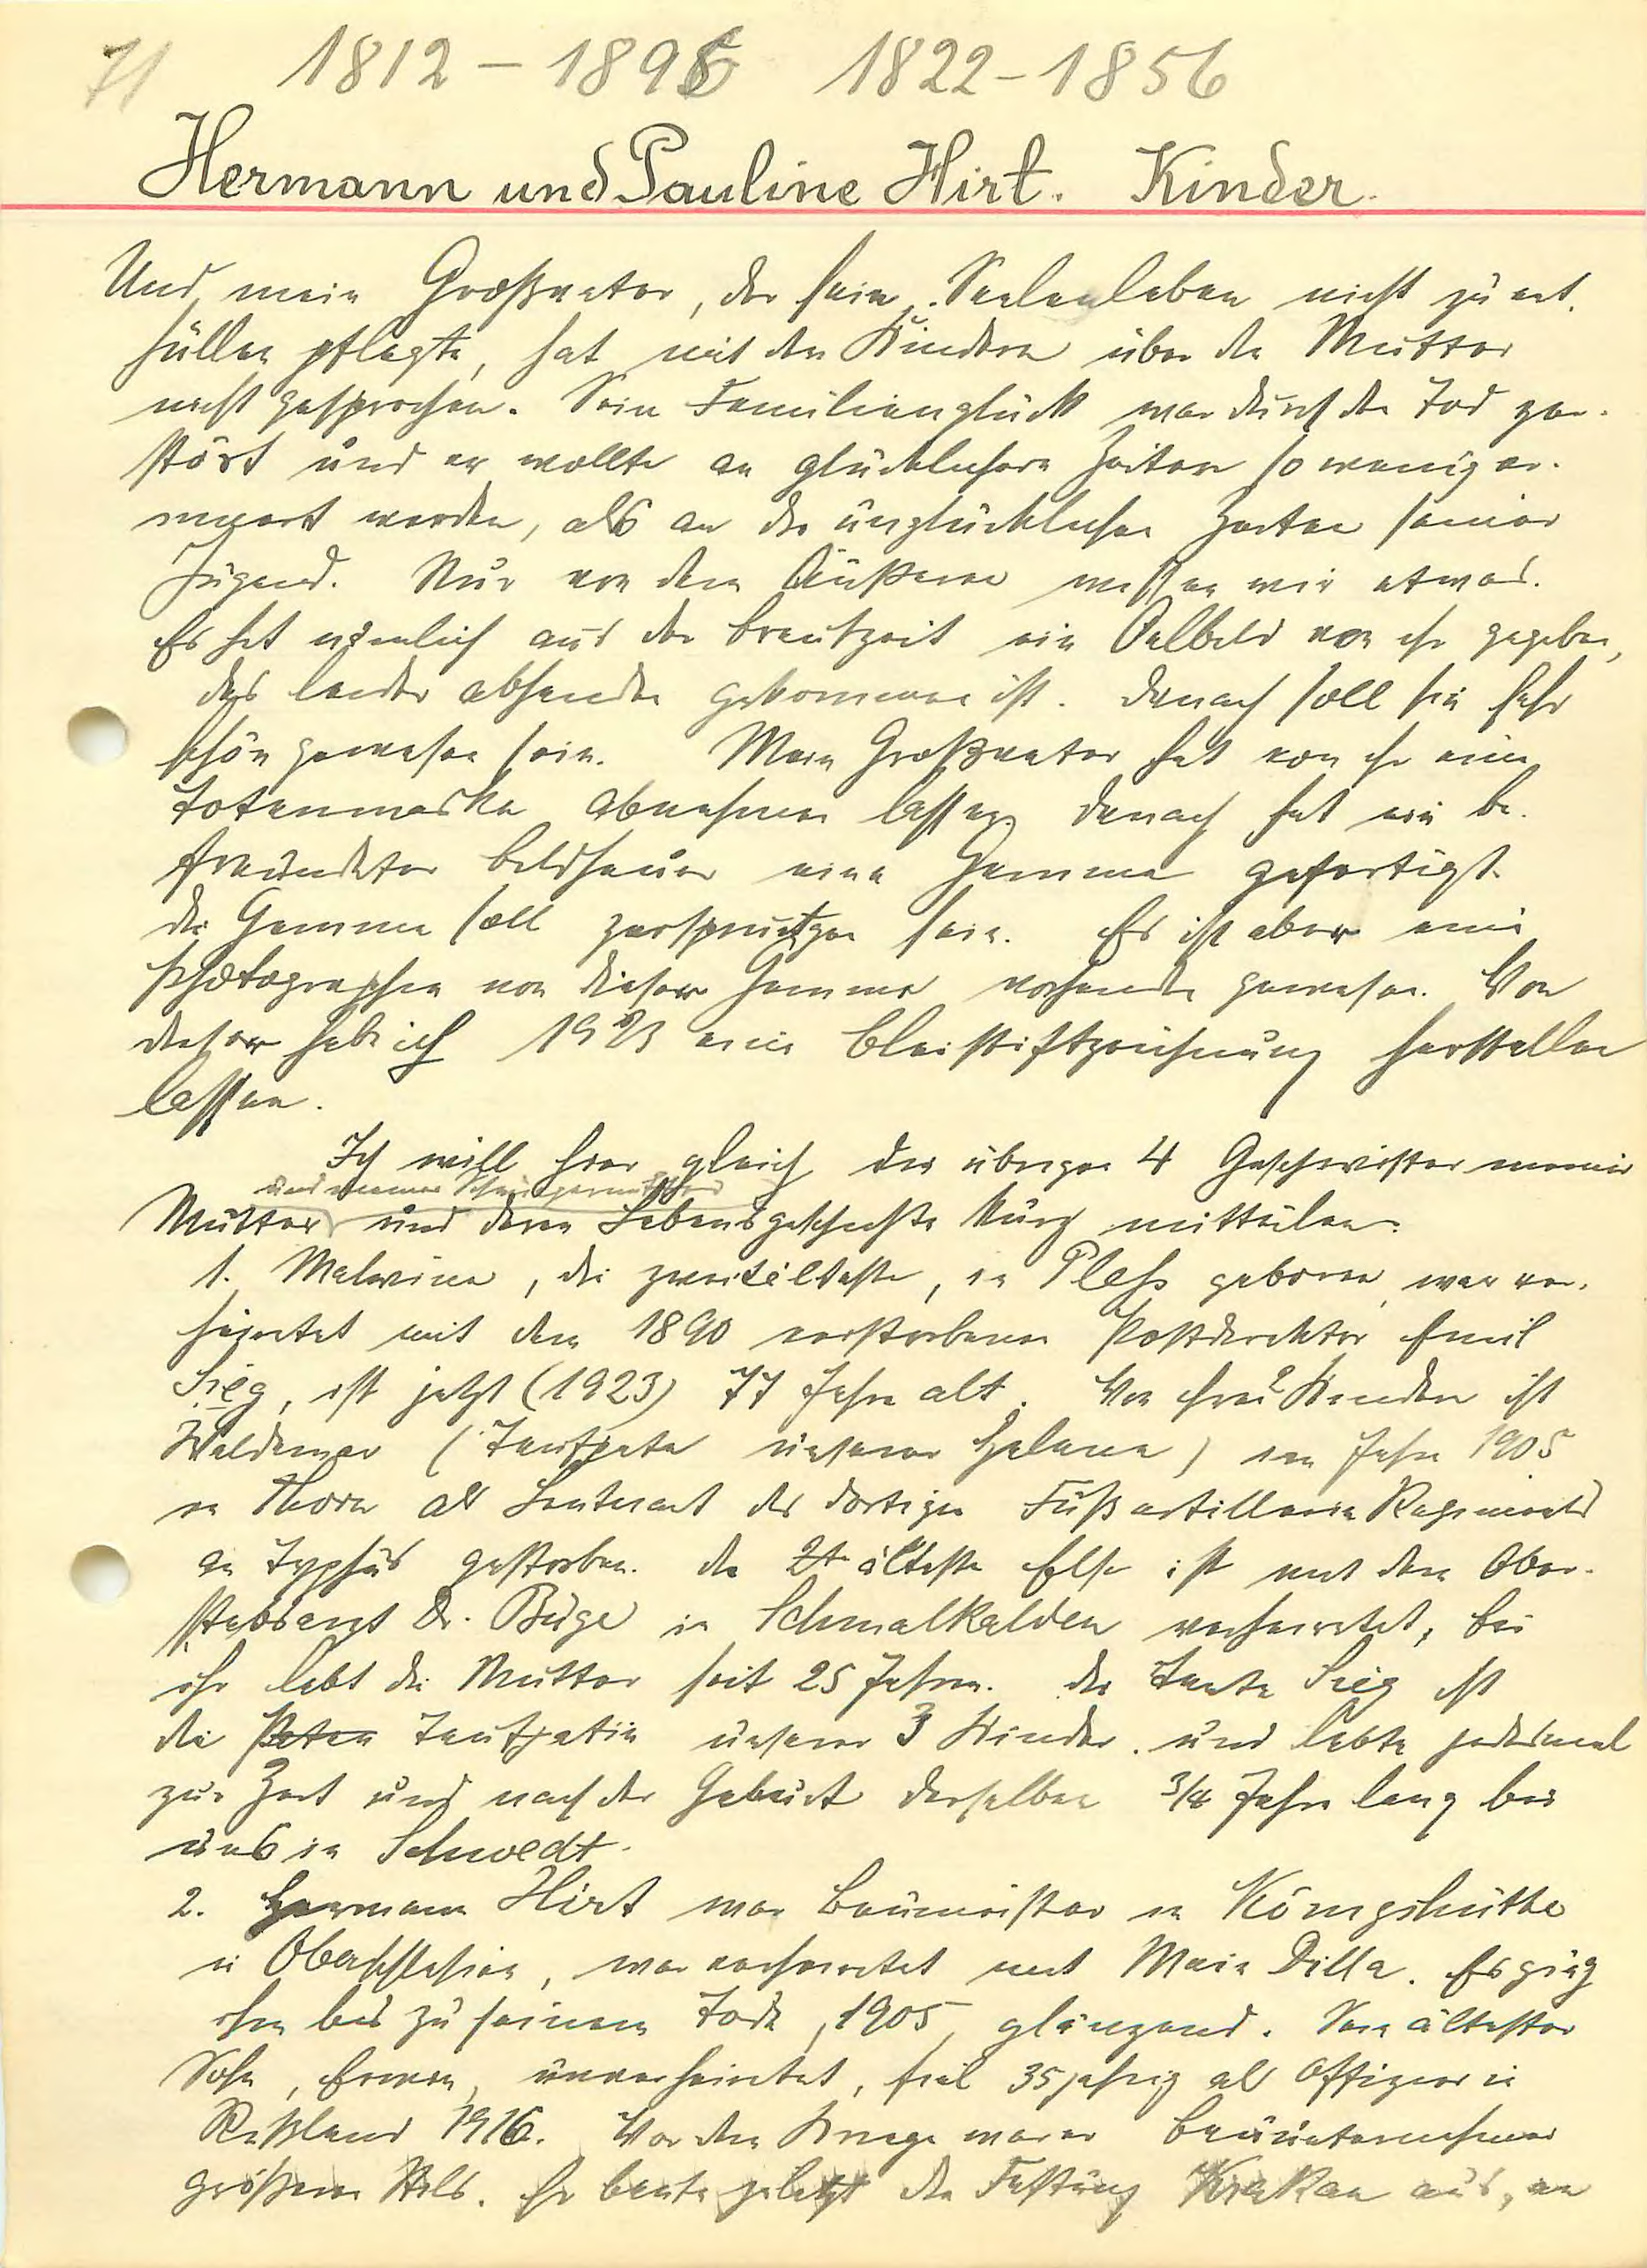 71 1812 – 1895 1822 – 1856
Hermann und Pauline Hirt. Kinder.
Und mein Großvater, der sein Seelenleben nicht zu ent-
hüllen pflegte, hat mit den Kindern über die Mutter
nicht gesprochen. Sein Familienglück war durch den Tod zer-
stört und er wollte an glücklichere Zeiten so wenig er-
innert werden, als an die unglücklichen Zeiten seiner
Jugend. Nur von dem Äußeren wissen wir etwas.
Es hat nämlich aus der Brautzeit ein Oelbild von ihr gegeben,
das leider abhanden gekommen ist. Danach soll sie sehr
schön gewesen sein. Mein Großvater hat von ihr eine
Totenmaske abnehmen lassen, danach hat ein be-
freundeter Bildhauer eine Gemme gefertigt.
die Gemme soll zersprungen sein. Es ist aber eine
Photographie von dieser Gemme vorhanden gewesen. Von
dieser hab ich 1923 eine Bleistiftzeichnung herstellen
lassen.
Ich will hier gleich die übrigen 4 Geschwister meiner
und meiner Schwiegermutter
Mutter und deren Lebensgeschichte kurz mitteilen.
1. Malwine, die zweitälteste, in Pleß geboren, war ver-
heiratet mit dem 1890 verstorbenen Postdirektor Emil
Sieg, ist jetzt (1923) 77 Jahre alt. Von ihren 2 Kindern ist
Waldemar (Taufpate unserer Helene) im Jahre 1905
in Thorn als Leutnant des dortigen Fußartillerie Regiments
an Typhus gestorben. die 2t älteste Else ist mit dem Ober-
stabsarzt Dr. Büge in Schmalkalden verheiratet, bei
ihr lebt die Mutter seit 25 Jahren. die Tante Sieg ist
die Paten Taufpatin unserer 3 Kinder und lebte jedesmal
zur Zeit und nach der Geburt derselben 3/4 Jahre lang bei
uns in Schwedt.
2. Hermann Hirt war Baumeister in Königshütte
in Oberschlesien, war verheiratet mit Marie Dilla. Es ging
ihm bis zu seinem Tode, 1905, glänzend. Sein ältester
Sohn, Erwin, unverheiratet, fiel 35jährig als Offizier in
Rußland 1916. Vor dem Kriege war er Bauunternehmer
größeren Stils. Er baute zuletzt die Festung Krakau aus, an